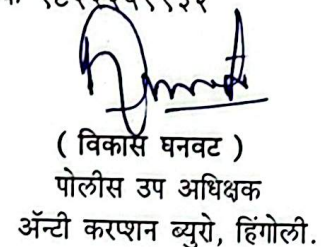 ( विकास घनवट )
पोलीस उप अधिक्षक
ॲन्टी करप्शन ब्युरो, हिंगोली.